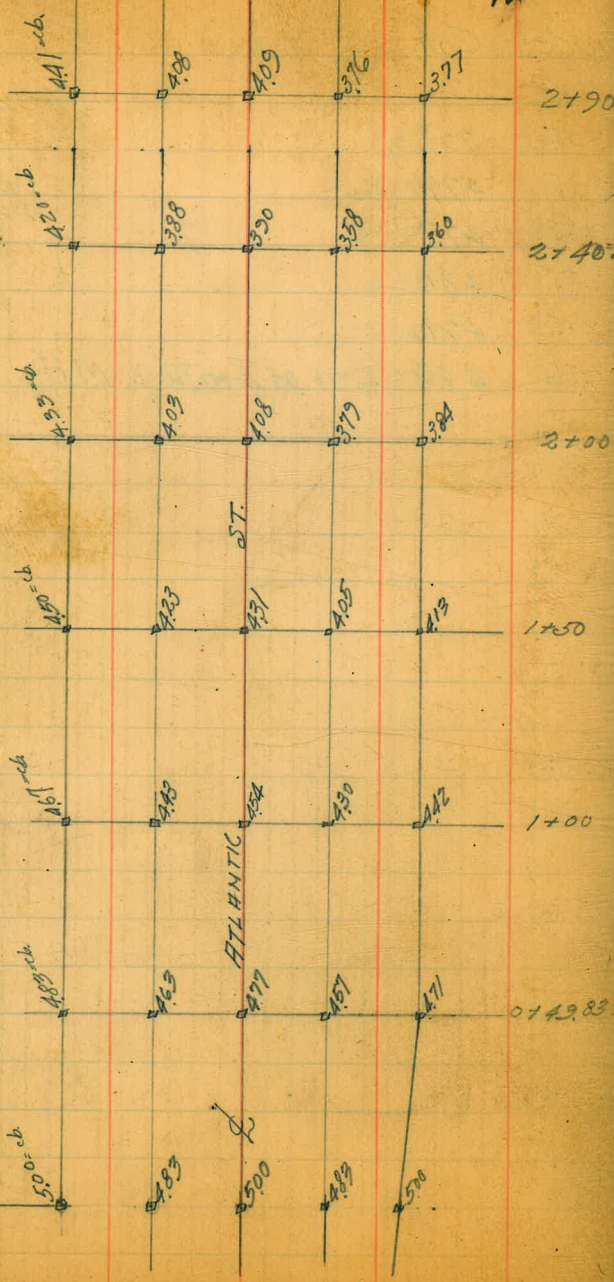 4.41=cb. 4.08 4.09 3.76 3.77 2+90
4.20=cb. 3.88 3.90 3.58 3.60 2+40
4.33=cb. 4.03 4.08 3.79 3.84 2+00
ST.
4.50=cb 4.23 4.31 4.05 4.13 1+50
4.67=cb 4.43 4.54 4.30 4.42 1+00
ATLANTIC
4.83=cb. 4.63 4.77 4.57 4.71 0+49.83
℄
5.00=cb. 4.83 5.00 4.83 5.00